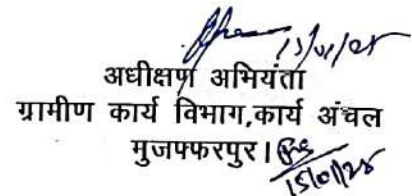 15/01/25
अधीक्षण अभियंता
ग्रामीण कार्य विभाग,कार्य अंचल
मुजफ्फरपुर।
15/01/25